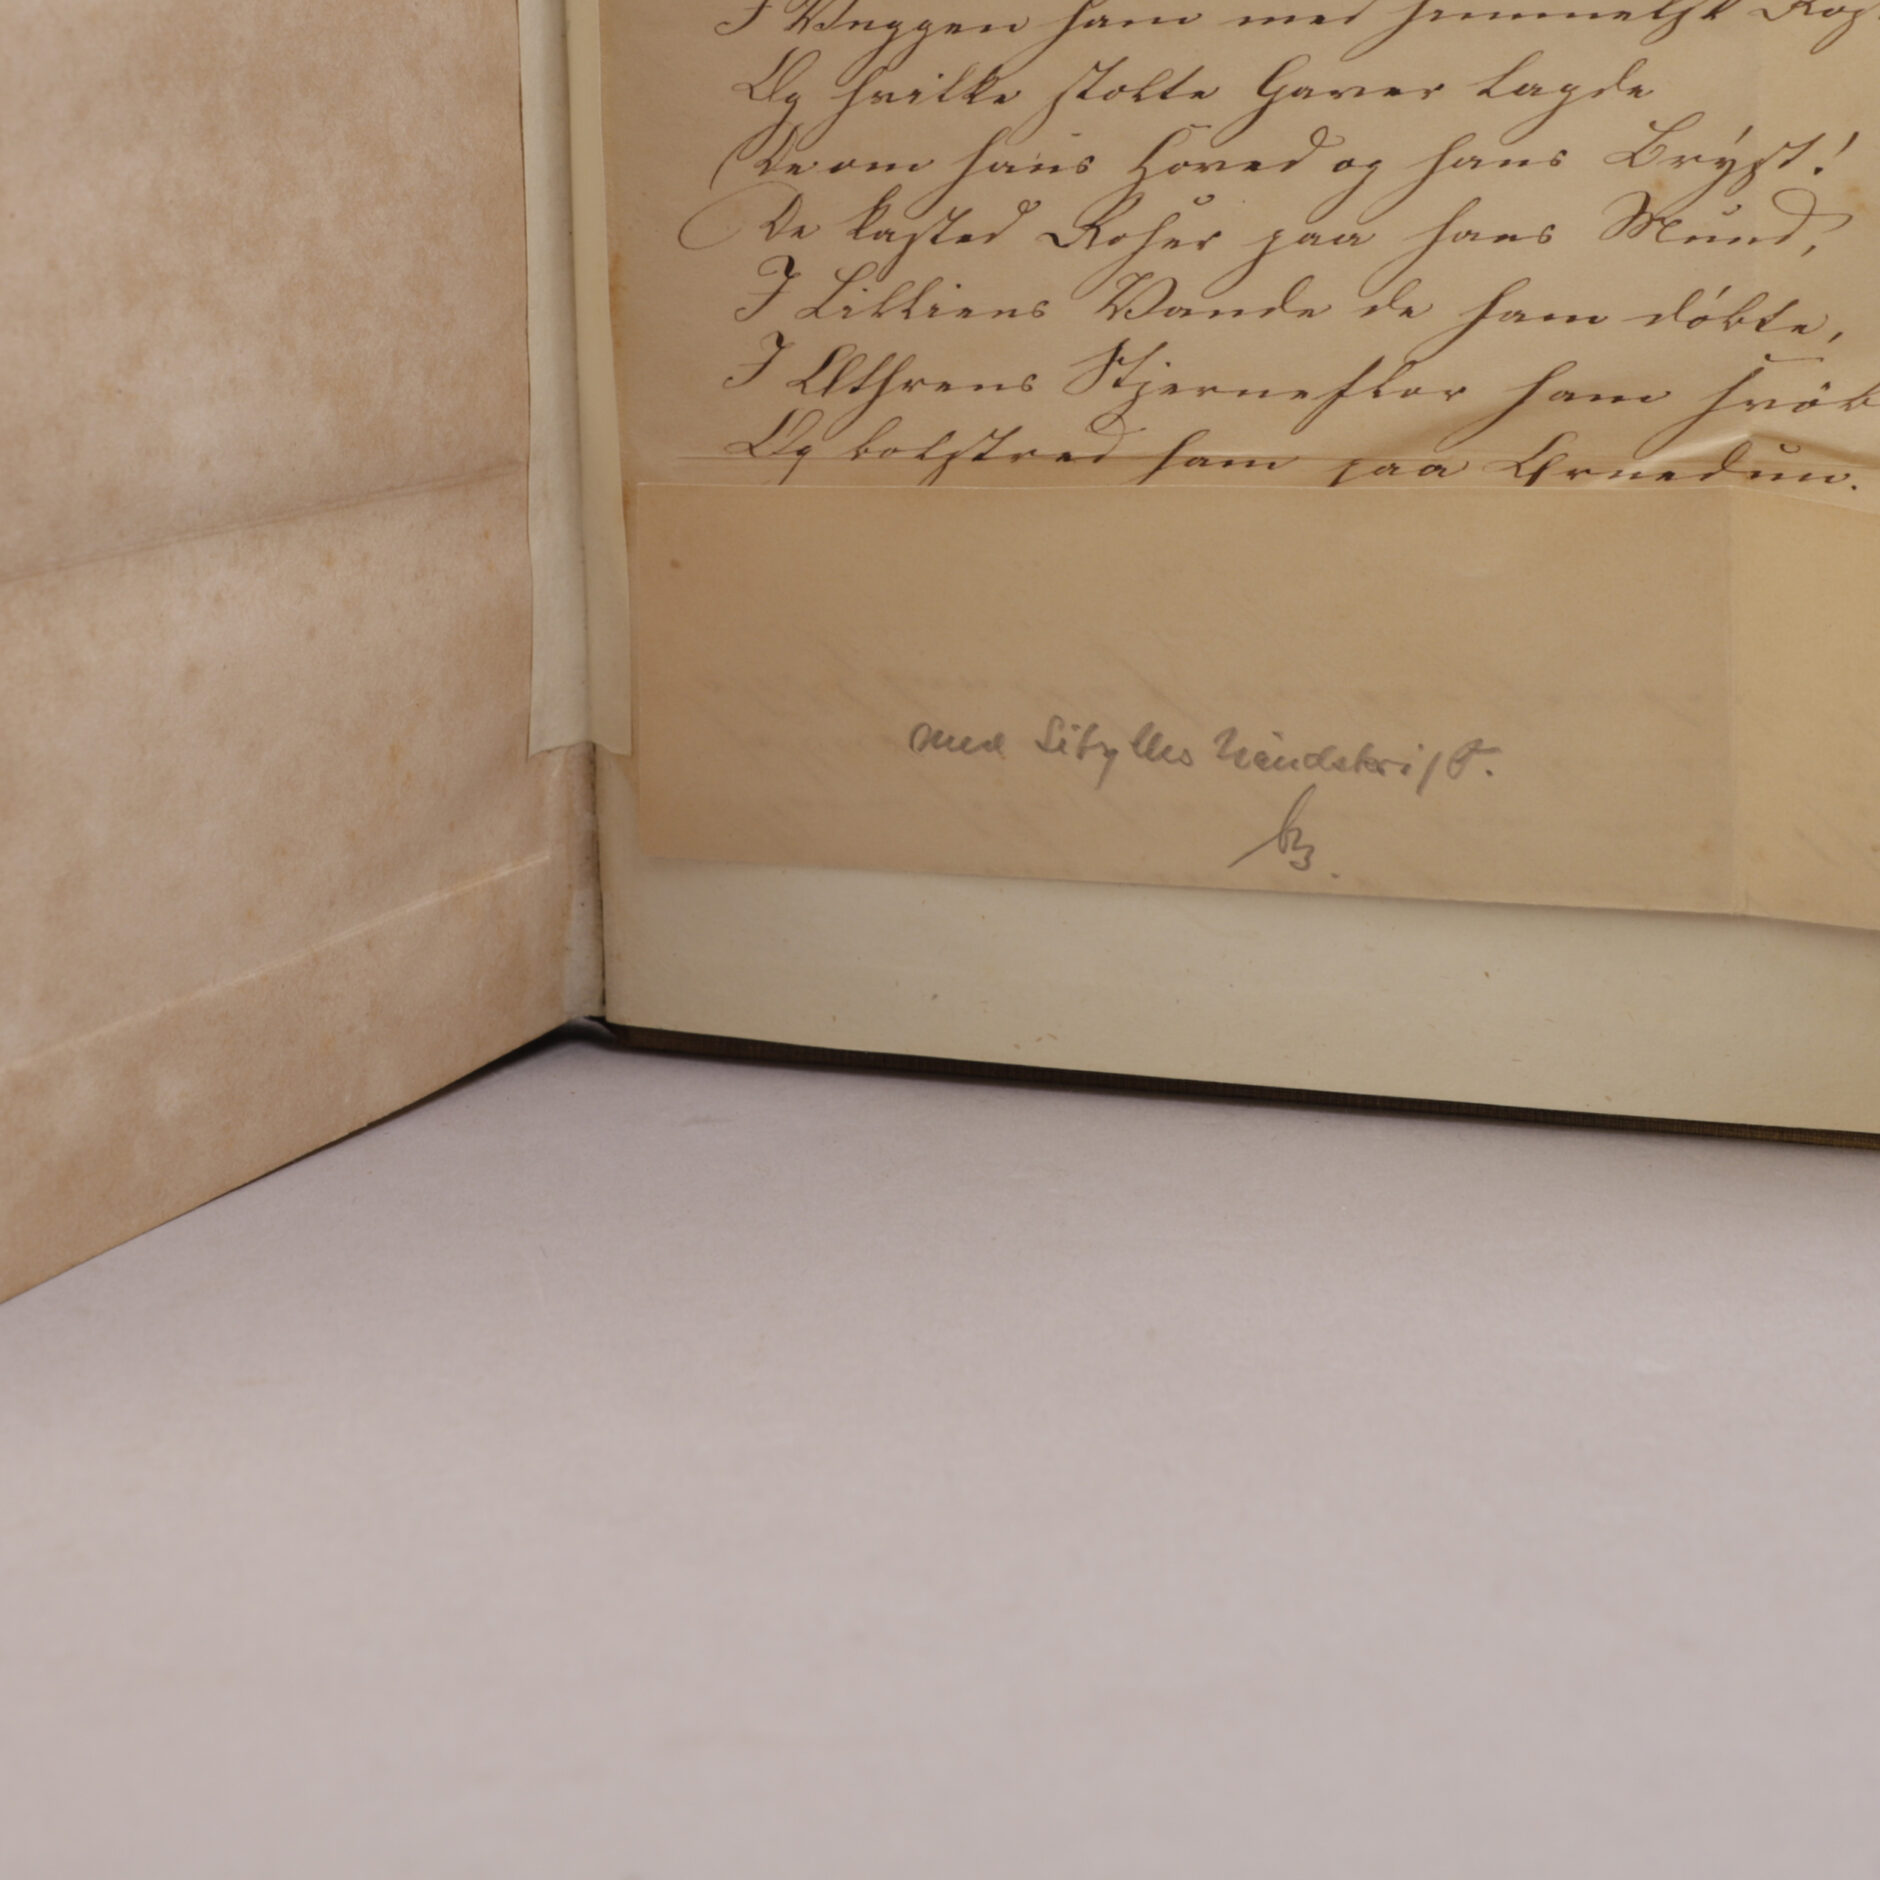 I Vuggen ham med himmelsk
Og hvilke stolte Gaver lagde
De om hans Hoved og hans Bryst!
De kasted Roser paa hans Mund,
I Lilliens Vande de ham döbte,
I Æthrens Stjerneflor ham svöb
Og bolstred ham paa Ørnedun.
med Sibylles Händskrift.